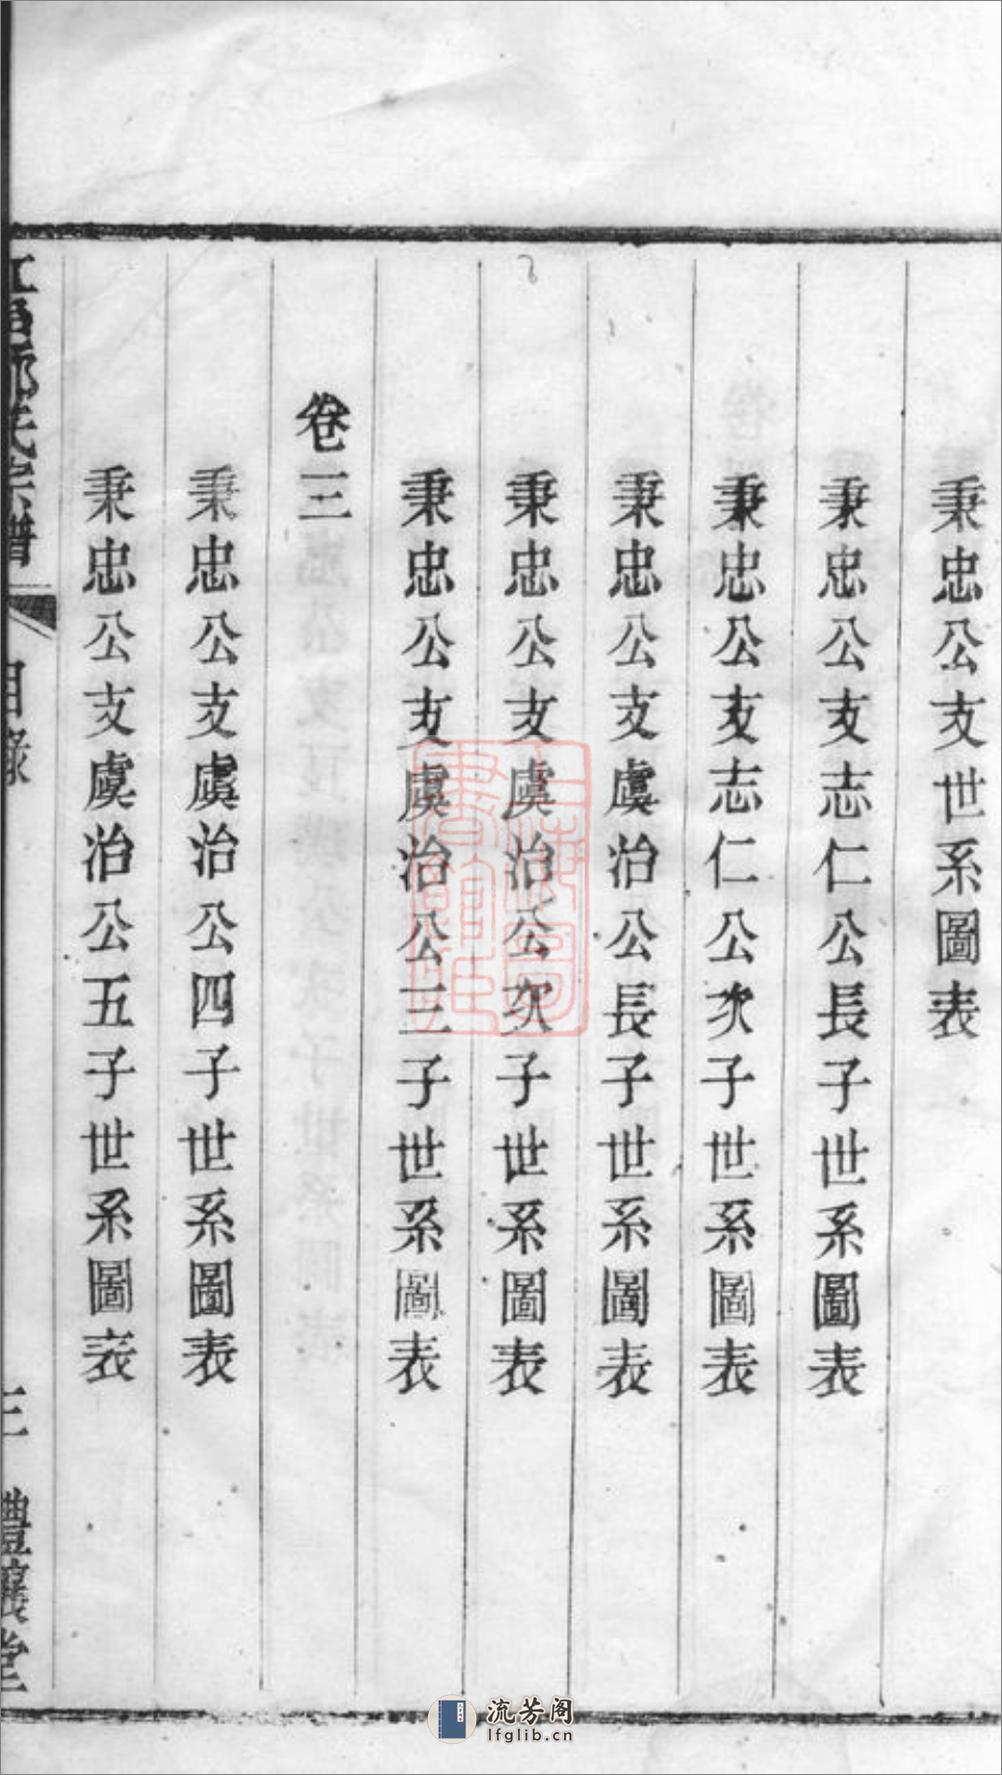 秉忠公支世系圖表
秉忠公支志仁公長子世系圖表
秉忠公支志仁公次子世系圖表
秉忠公支虞治公長子世系圖表
秉忠公支虞治公次子世系圖表
秉忠公支虞治公三子世系圖表
卷三
秉忠公支虞治公四子世系圖表
秉忠公支虞治公五子世系圖表
氏宗譜
目錄
三
禮讓堂
上海圖書館藏
流芳阁
lfglib.cn